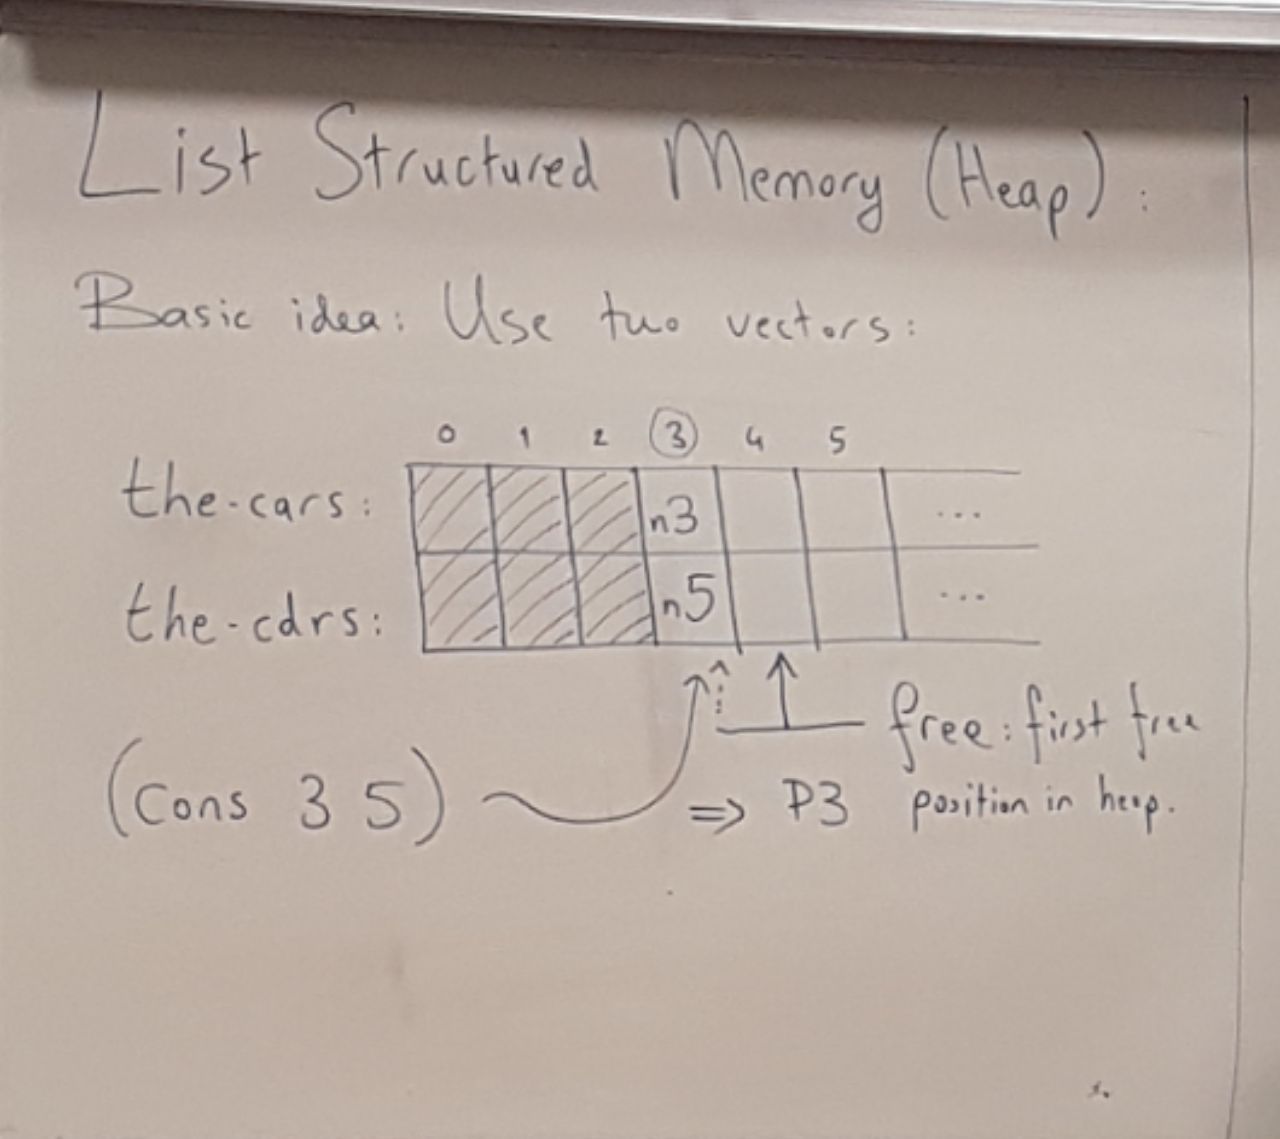 List Structured Memory (Heap):
Basic idea: Use two vectors:
0 1 2 3 4 5
the-cars: n3 ...
the-cdrs: n5 ...
free: first free
(Cons 3 5) => P3 position in heap.